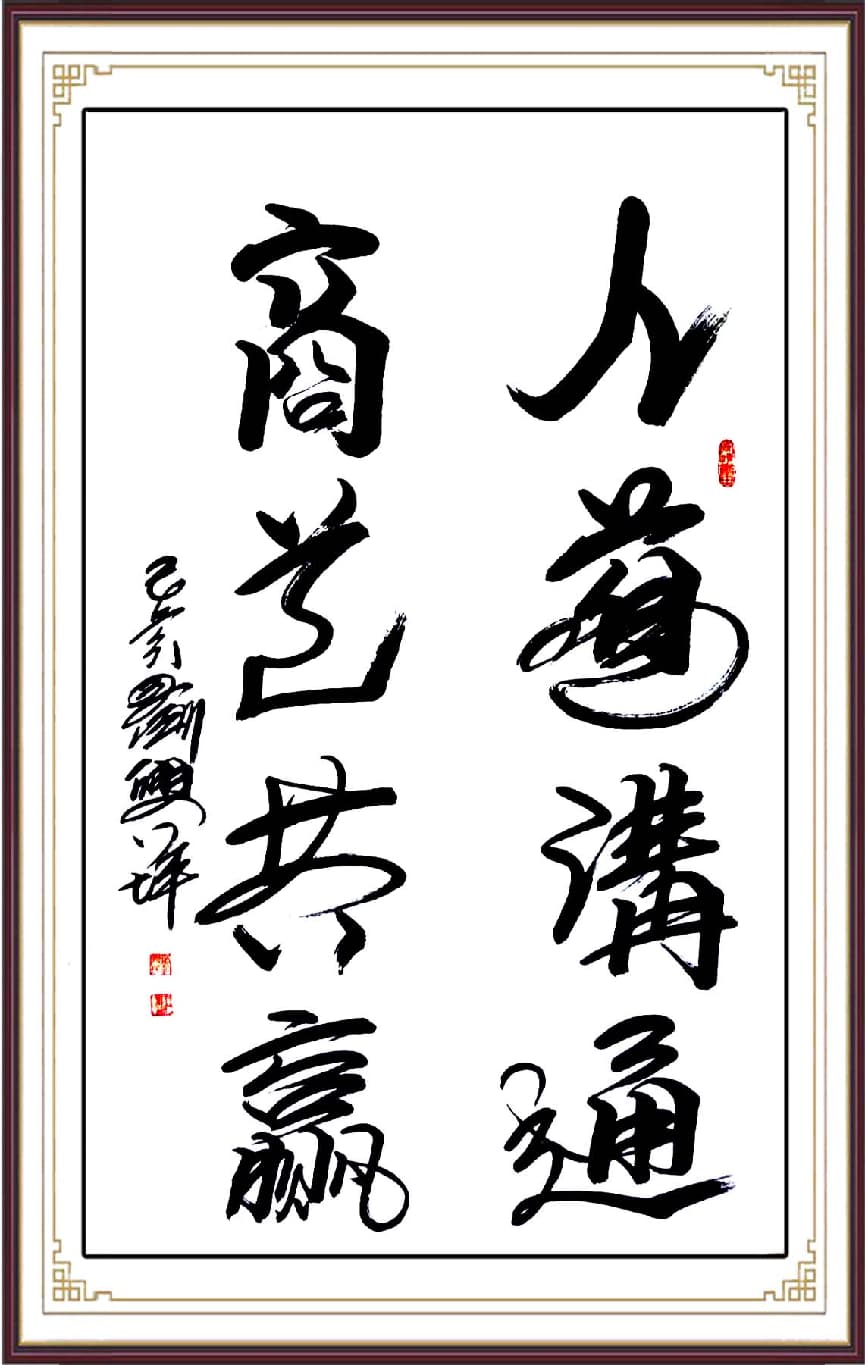 人溝通
商道共贏
己亥劉興